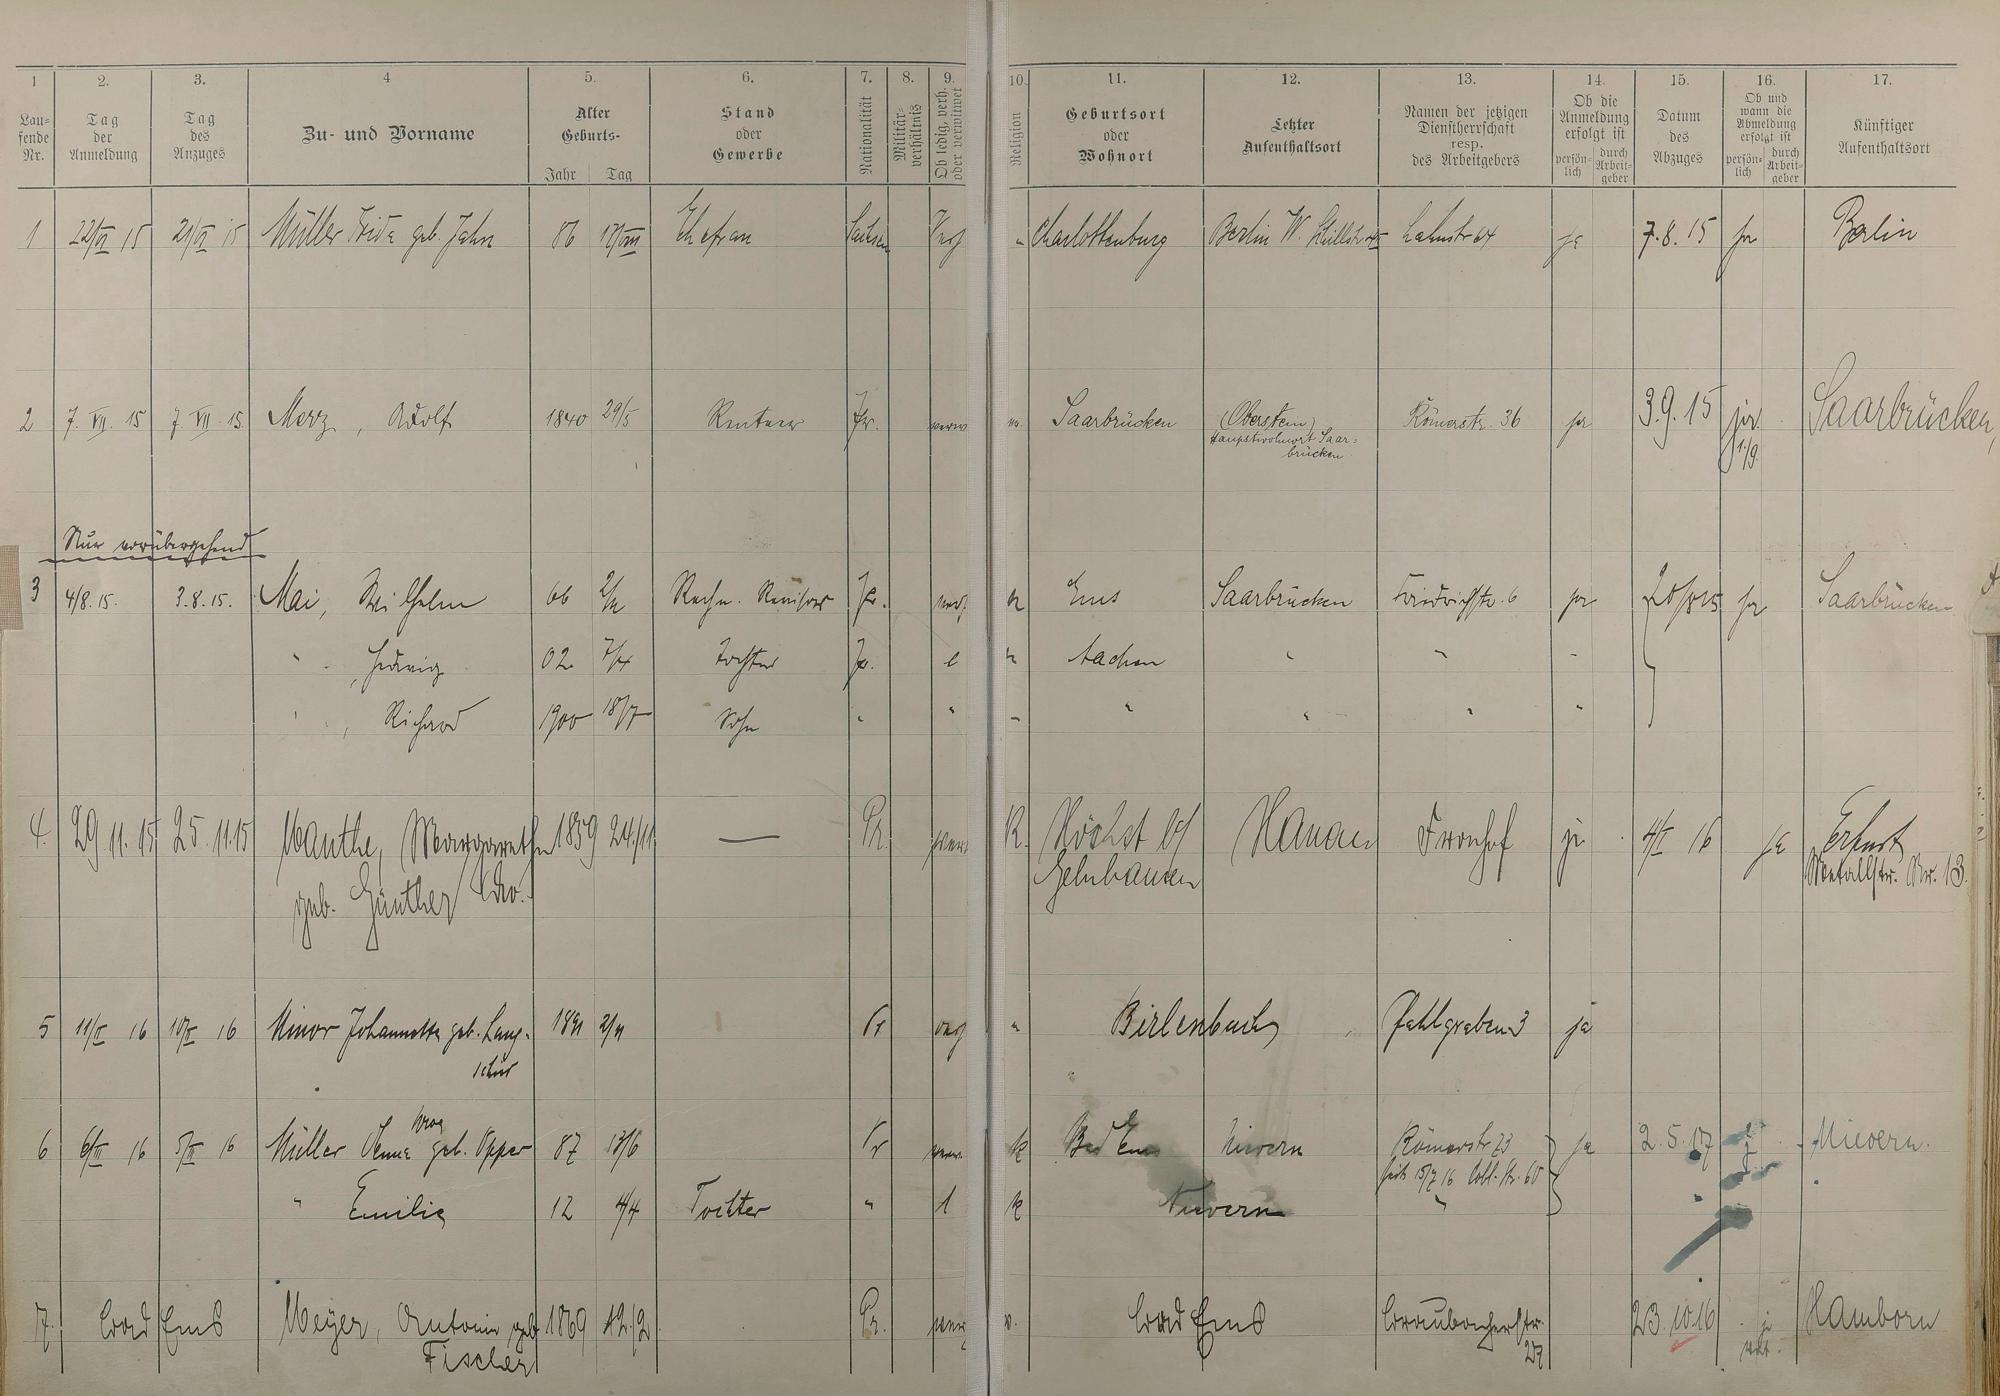 1 2. 3. 4 5. 6. 7. 8. 9. 10. 11. 12. 13. 14. 15. 16. 17.
Lau=
fende
Nr.
Tag
der
Anmeldung
Tag
des
Anzuges
Zu- und Vorname
Alter
Geburts-
Jahr Tag
Stand
oder
Gewerbe
Nationalität
Militär-
verhältnis
Ob ledig, verh.
oder verwitwet
Religion
Geburtsort
oder
Wohnort
Letzter
Aufenthaltsort
Namen der jetzigen
Dienstherrschaft
resp.
des Arbeitgebers
Ob die
Anmeldung
erfolgt ist
persön-
lich
durch
Arbeit-
geber
Datum
des
Abzuges
Ob und
wann die
Abmeldung
erfolgt ist
persön-
lich
durch
Arbeit-
geber
Künftiger
Aufenthaltsort
1 22/VI 15 21/VI 15 Müller Frida geb. Jahn 86 Ehefrau Sachsen Charlottenburg Berlin W. Lahnstr 64 ja 7.8.15 ja Berlin
2 7. VII. 15 7. VII. 15 Merz, Adolf 1840 29/5 Rentner Pr. Saarbrücken (Oberstein) Römerstr. 36 ja 3.9.15 ja Saarbrücken,
Hauptwohnort Saar=
brücken
1/9.
Nur vorübergehend
3 4/8.15. 3.8.15. Mai, Wilhelm 66 Rechn. Revisor Pr. Ems Saarbrücken Friedrichstr. 6 ja ja Saarbrücken
" , Hedwig 02 Tochter Pr. l Aachen " " "
" , Richard 1900 18/7 Sohn " " " " " " "
4. 29.11.15 25.11.15 Manthe, Margarethe 1859 24/11 — Pr. R. Höchst b/ Hanau Fronhof ja 4/I 16 ja Erfurt
geb. Günther Gelnhausen Metallstr. Nr. 13.
5 11/II 16 10/II 16 Minor Johannette geb. Lang- Pr Birlenbach Pfahlgraben 3 ja
schied
6 6/III 16 5/III 16 Müller geb. Opper 87 13/6 Pr k Bad Ems Nievern Römerstr 23 ja 2.5.17 Nievern.
seit 15/7 16 Cobl. Str. 60
" Emilie 12 4/4 Tochter " l k Nievern "
7. Bad Ems Meyer, Antonie geb 1869 12/2 Pr. Bad Ems Braubacherstr. 23.10.16 Hamborn
Fischer